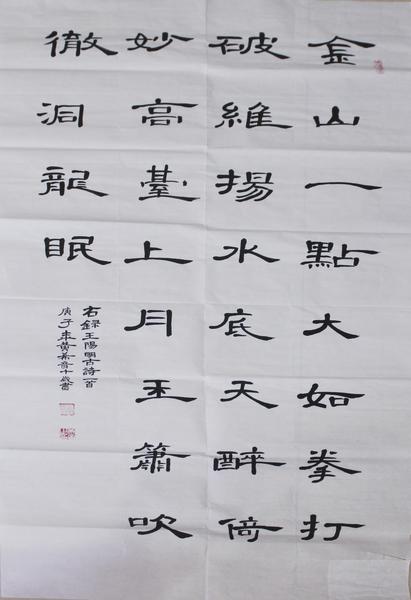 金山一點大如拳打
破維揚水底天醉倚
妙高臺上月玉簫吹
徹洞龍眠
右錄王陽明古詩一首
庚子年黃十歲書